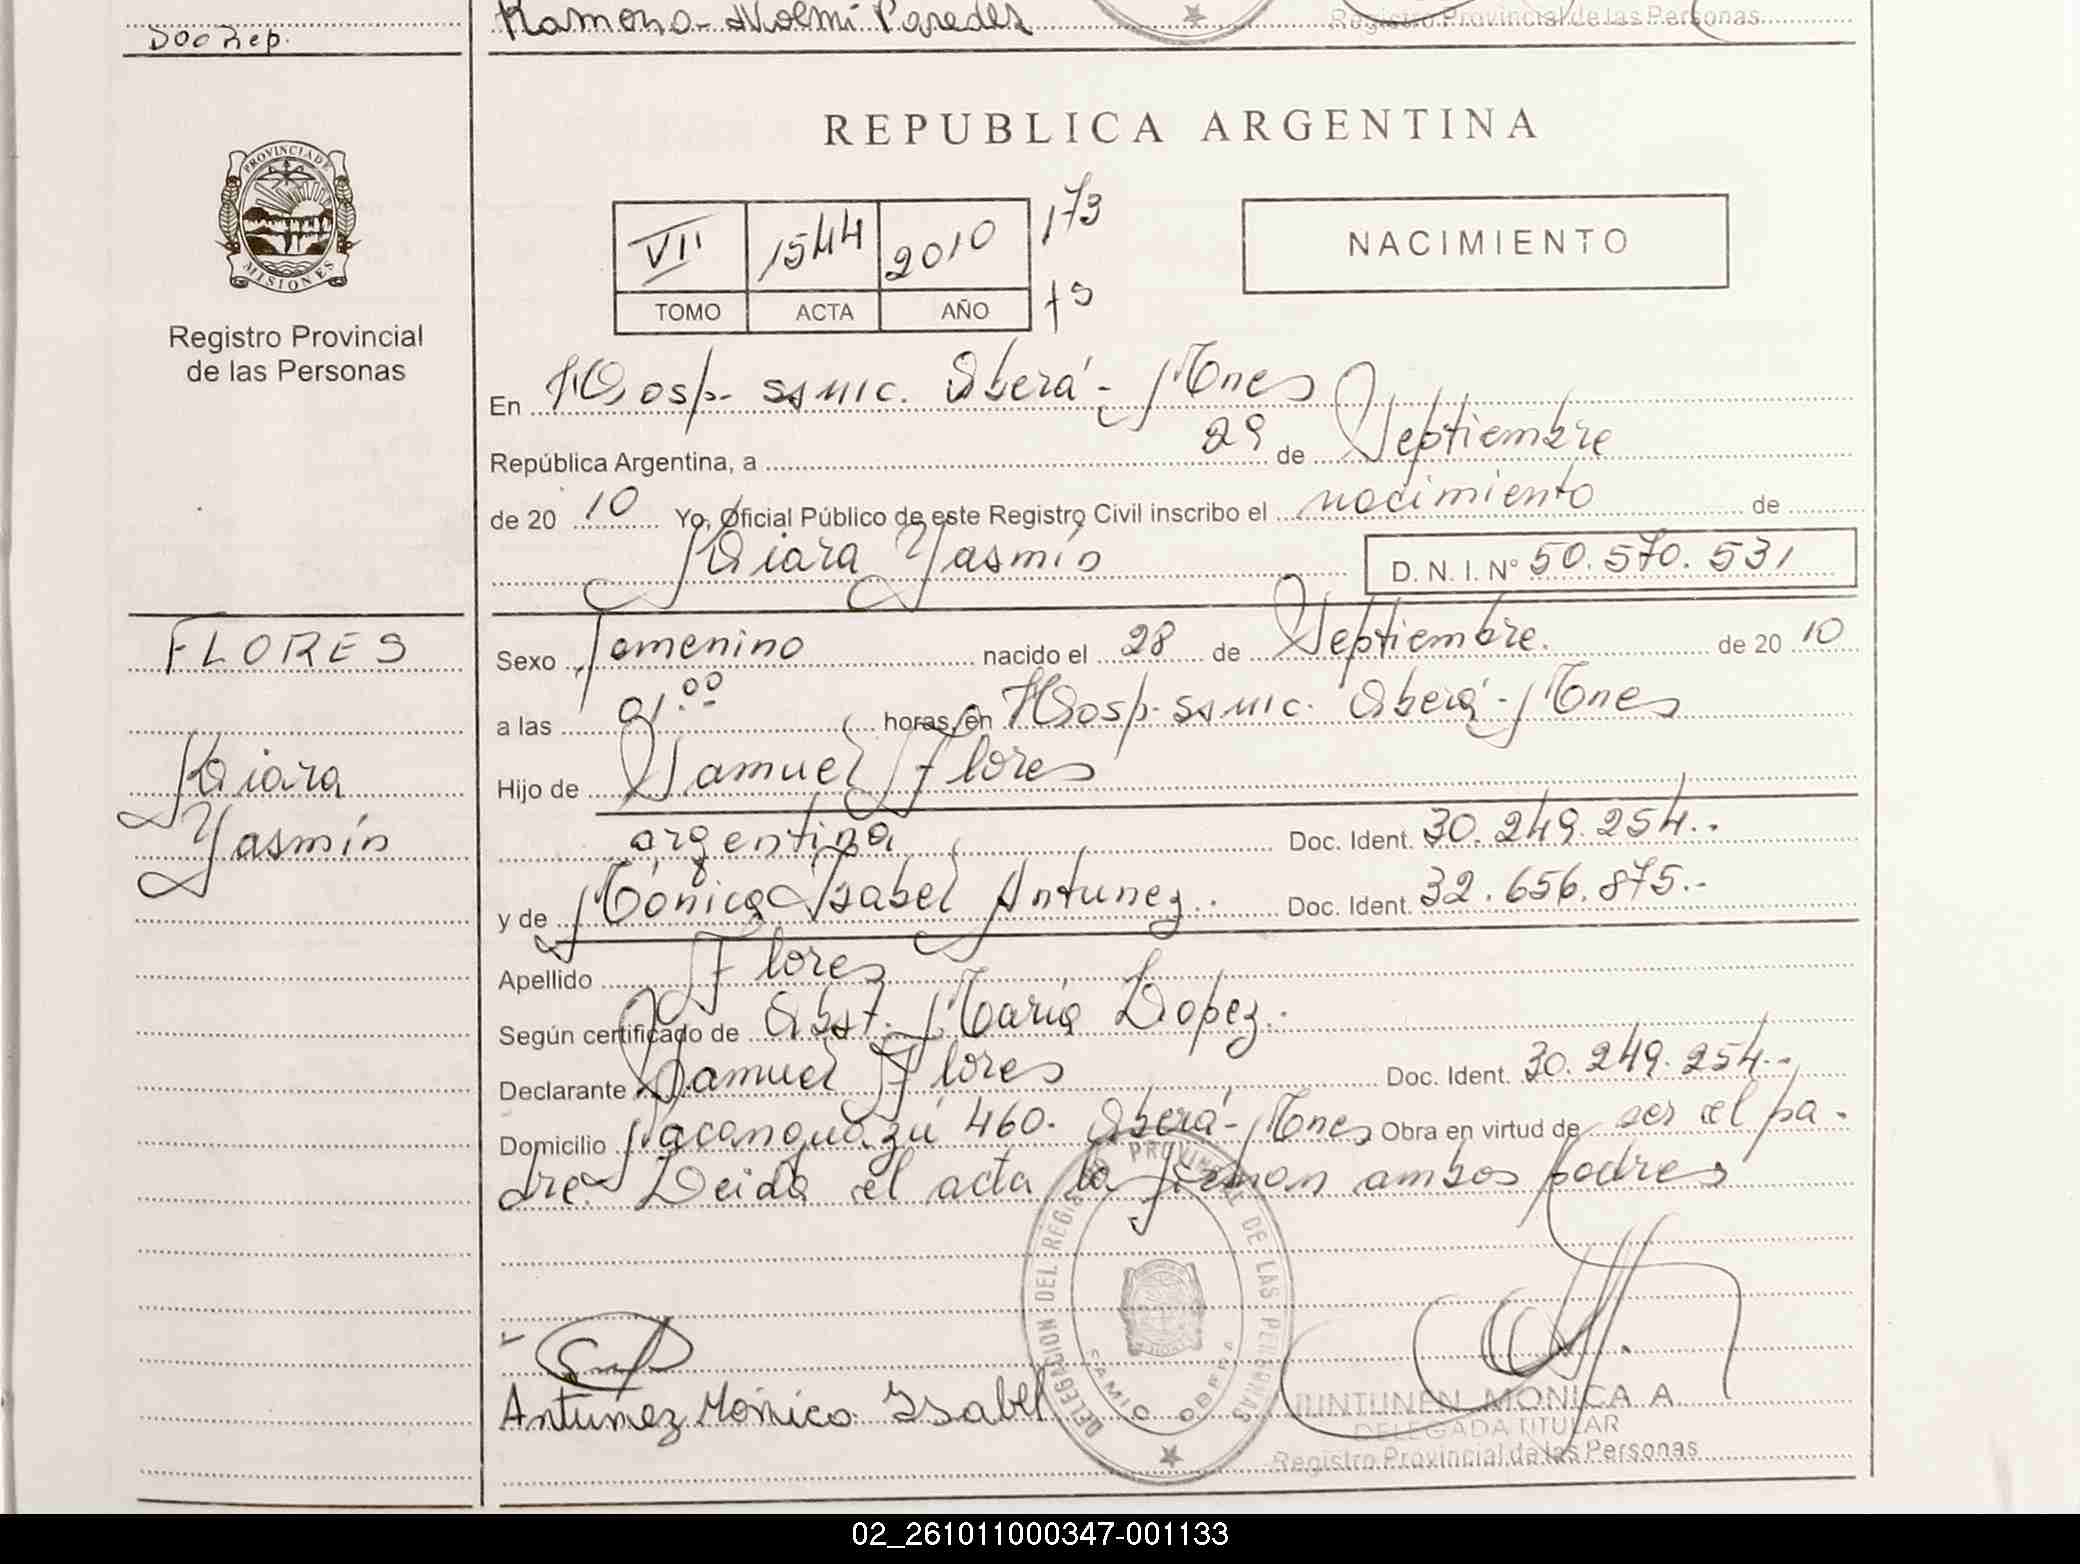 Doc Rep.
Ramona Noemi Paredes
Registro Provincial de las Personas
PROVINCIA DE
MISIONES
Registro Provincial
de las Personas
REPUBLICA ARGENTINA
VII 1544 2010 173
TOMO ACTA AÑO
NACIMIENTO
En Hosp. SSMIC. Oberá - Mnes
República Argentina, a 29 de Septiembre
de 2010 Yo, Oficial Público de este Registro Civil inscribo el nacimiento de
Kiara Yasmín D. N. I. N° 50.570.531
FLORES
Kiara
Yasmín
Sexo femenino nacido el 28 de Septiembre. de 2010
a las 01:00 horas, en Hosp. SSMIC. Oberá - Mnes
Hijo de Samuel Flores
argentina Doc. Ident. 30.249.254.-
y de Mónica Isabel Antunez. Doc. Ident. 32.656.875.-
Apellido Flores
Según certificado de Obst. María Lopez.
Declarante Samuel Flores Doc. Ident. 30.249.254.-
Domicilio Yacanguazú 460. Oberá - Mnes Obra en virtud de ser el pa-
dre Leida el acta la firman ambos padres
DELEGACION DEL REGISTRO PROVINCIAL DE LAS PERSONAS
Antunez Mónica Isabel
JUNTUNEN MONICA A
DELEGADA TITULAR
Registro Provincial de las Personas
02_261011000347-001133